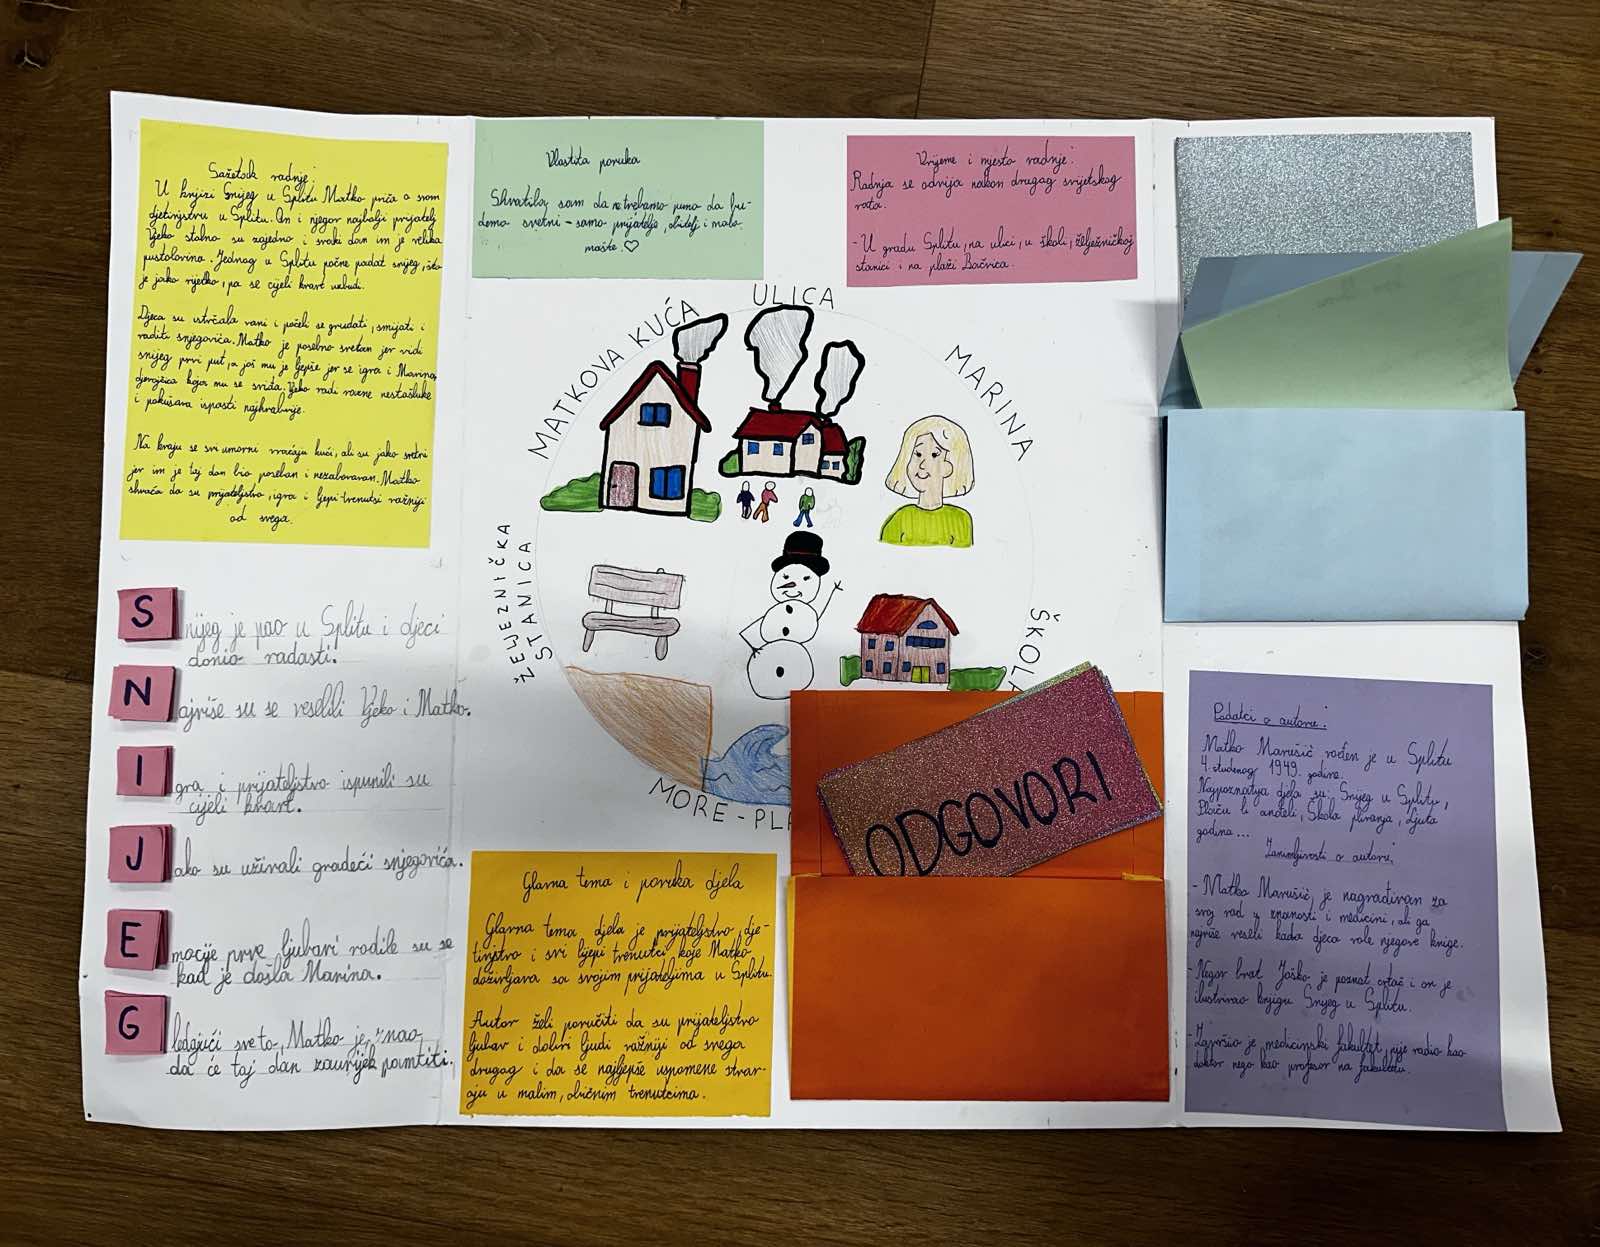 Sažetak radnje:
U knjizi Snijeg u Splitu Matko priča o svom
djetinjstvu u Splitu. On i njegov najbolji prijatelj
Vjeko stalno su zajedno i svaki dan im je velika
pustolovina. Jednog u Splitu počne padat snijeg, što
je jako rijetko, pa se cijeli kvart uzbudi.
Djeca su istrčala vani i počeli se grudati, smijati i
raditi snjegovića. Matko je posebno sretan jer vidi
snijeg prvi put, a još mu je ljepše jer se igra i Marina,
djevojčica koja mu se sviđa. Vjeko radi razne nestašluke
i pokušava ispasti najhrabrije.
Na kraju se svi umorni vraćaju kući, ali su jako sretni
jer im je taj dan bio poseban i nezaboravan. Matko
shvaća da su prijateljstvo, igra i ljepi trenutsi važniji
od svega.
Vlastita poruka
Shvatila sam da ne trebamo puno da bu-
demo svetni - samo prijatelje, obitelj i malo
mašte. ♡
Vrijeme i mjesto radnje:
Radnja se odvija nakon drugog svijetskog
rata.
- U gradu Splitu, na ulici, u školi, željezničkoj
stanici i na plaži Bačvica.
ULICA
MATKOVA KUĆA
MARINA
ŽELJEZNIČKA
STANICA
ŠKOLA
MORE - PLA
S nijeg je pao u Splitu i djeci
donio radasti.
N ajviše su se veselili Vjeko i Matko.
I gra i prijateljstvo ispunili su
cijeli kvart.
J ako su uživali gradeći snjegovića.
E mocije prve ljubavi rodile su se
kad je došla Marina.
G ledajući sve to, Matko je znao
da će taj dan zauvijek pamtiti.
Glavna tema i poruka djela
Glavna tema djela je prijateljstvo, dje-
tinjstvo i svi lijepi trenutci koje Matko
doživljava sa svojim prijateljima u Splitu.
Autor želi poručiti da su prijateljstvo
ljubav i dobri ljudi važniji od svega
drugog i da se najljepše uspomene stvar-
aju u malim, običnim trenutcima.
ODGOVORI
Podatci o autoru:
Matko Marušić rođen je u Splitu
4. studenog 1949. godine.
Najpoznatija djela su: Snijeg u Splitu,
Plaču li anđeli, Škola plivanja, Ljuta
godina...
Zanimljivosti o autoru:
- Matko Marušić je nagrađivan za
svoj rad u znanosti i medicini, ali ga
najviše veseli kada djeca vole njegove knige.
- Njegov brat Joško je poznat crtač i on je
ilustrirao knjigu Snijeg u Splitu.
- Završio je medicinski fakultet, nije radio kao
doktor nego kao profesor na fakultetu.